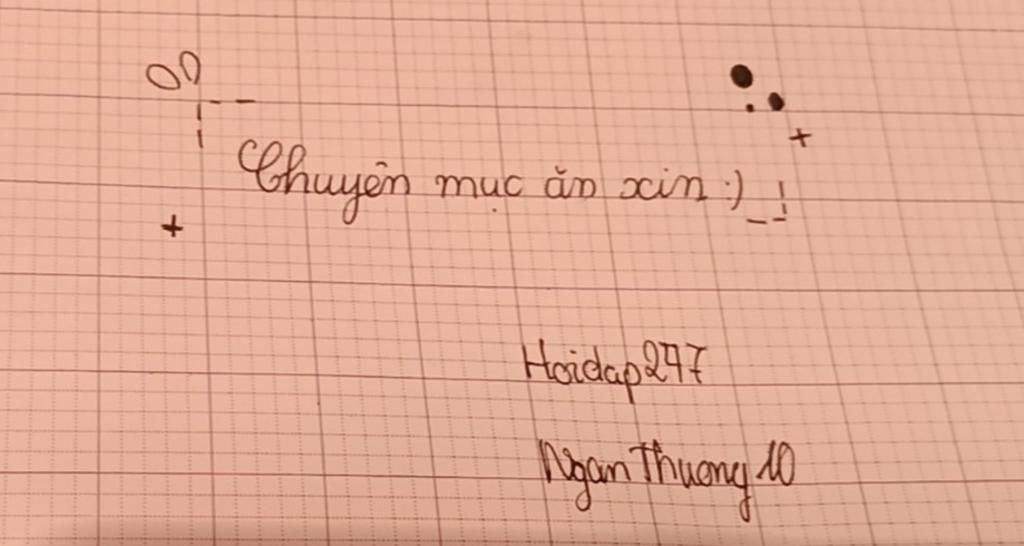 Chuyên mục ăn xin :)
Hoidap247
NganThuong10